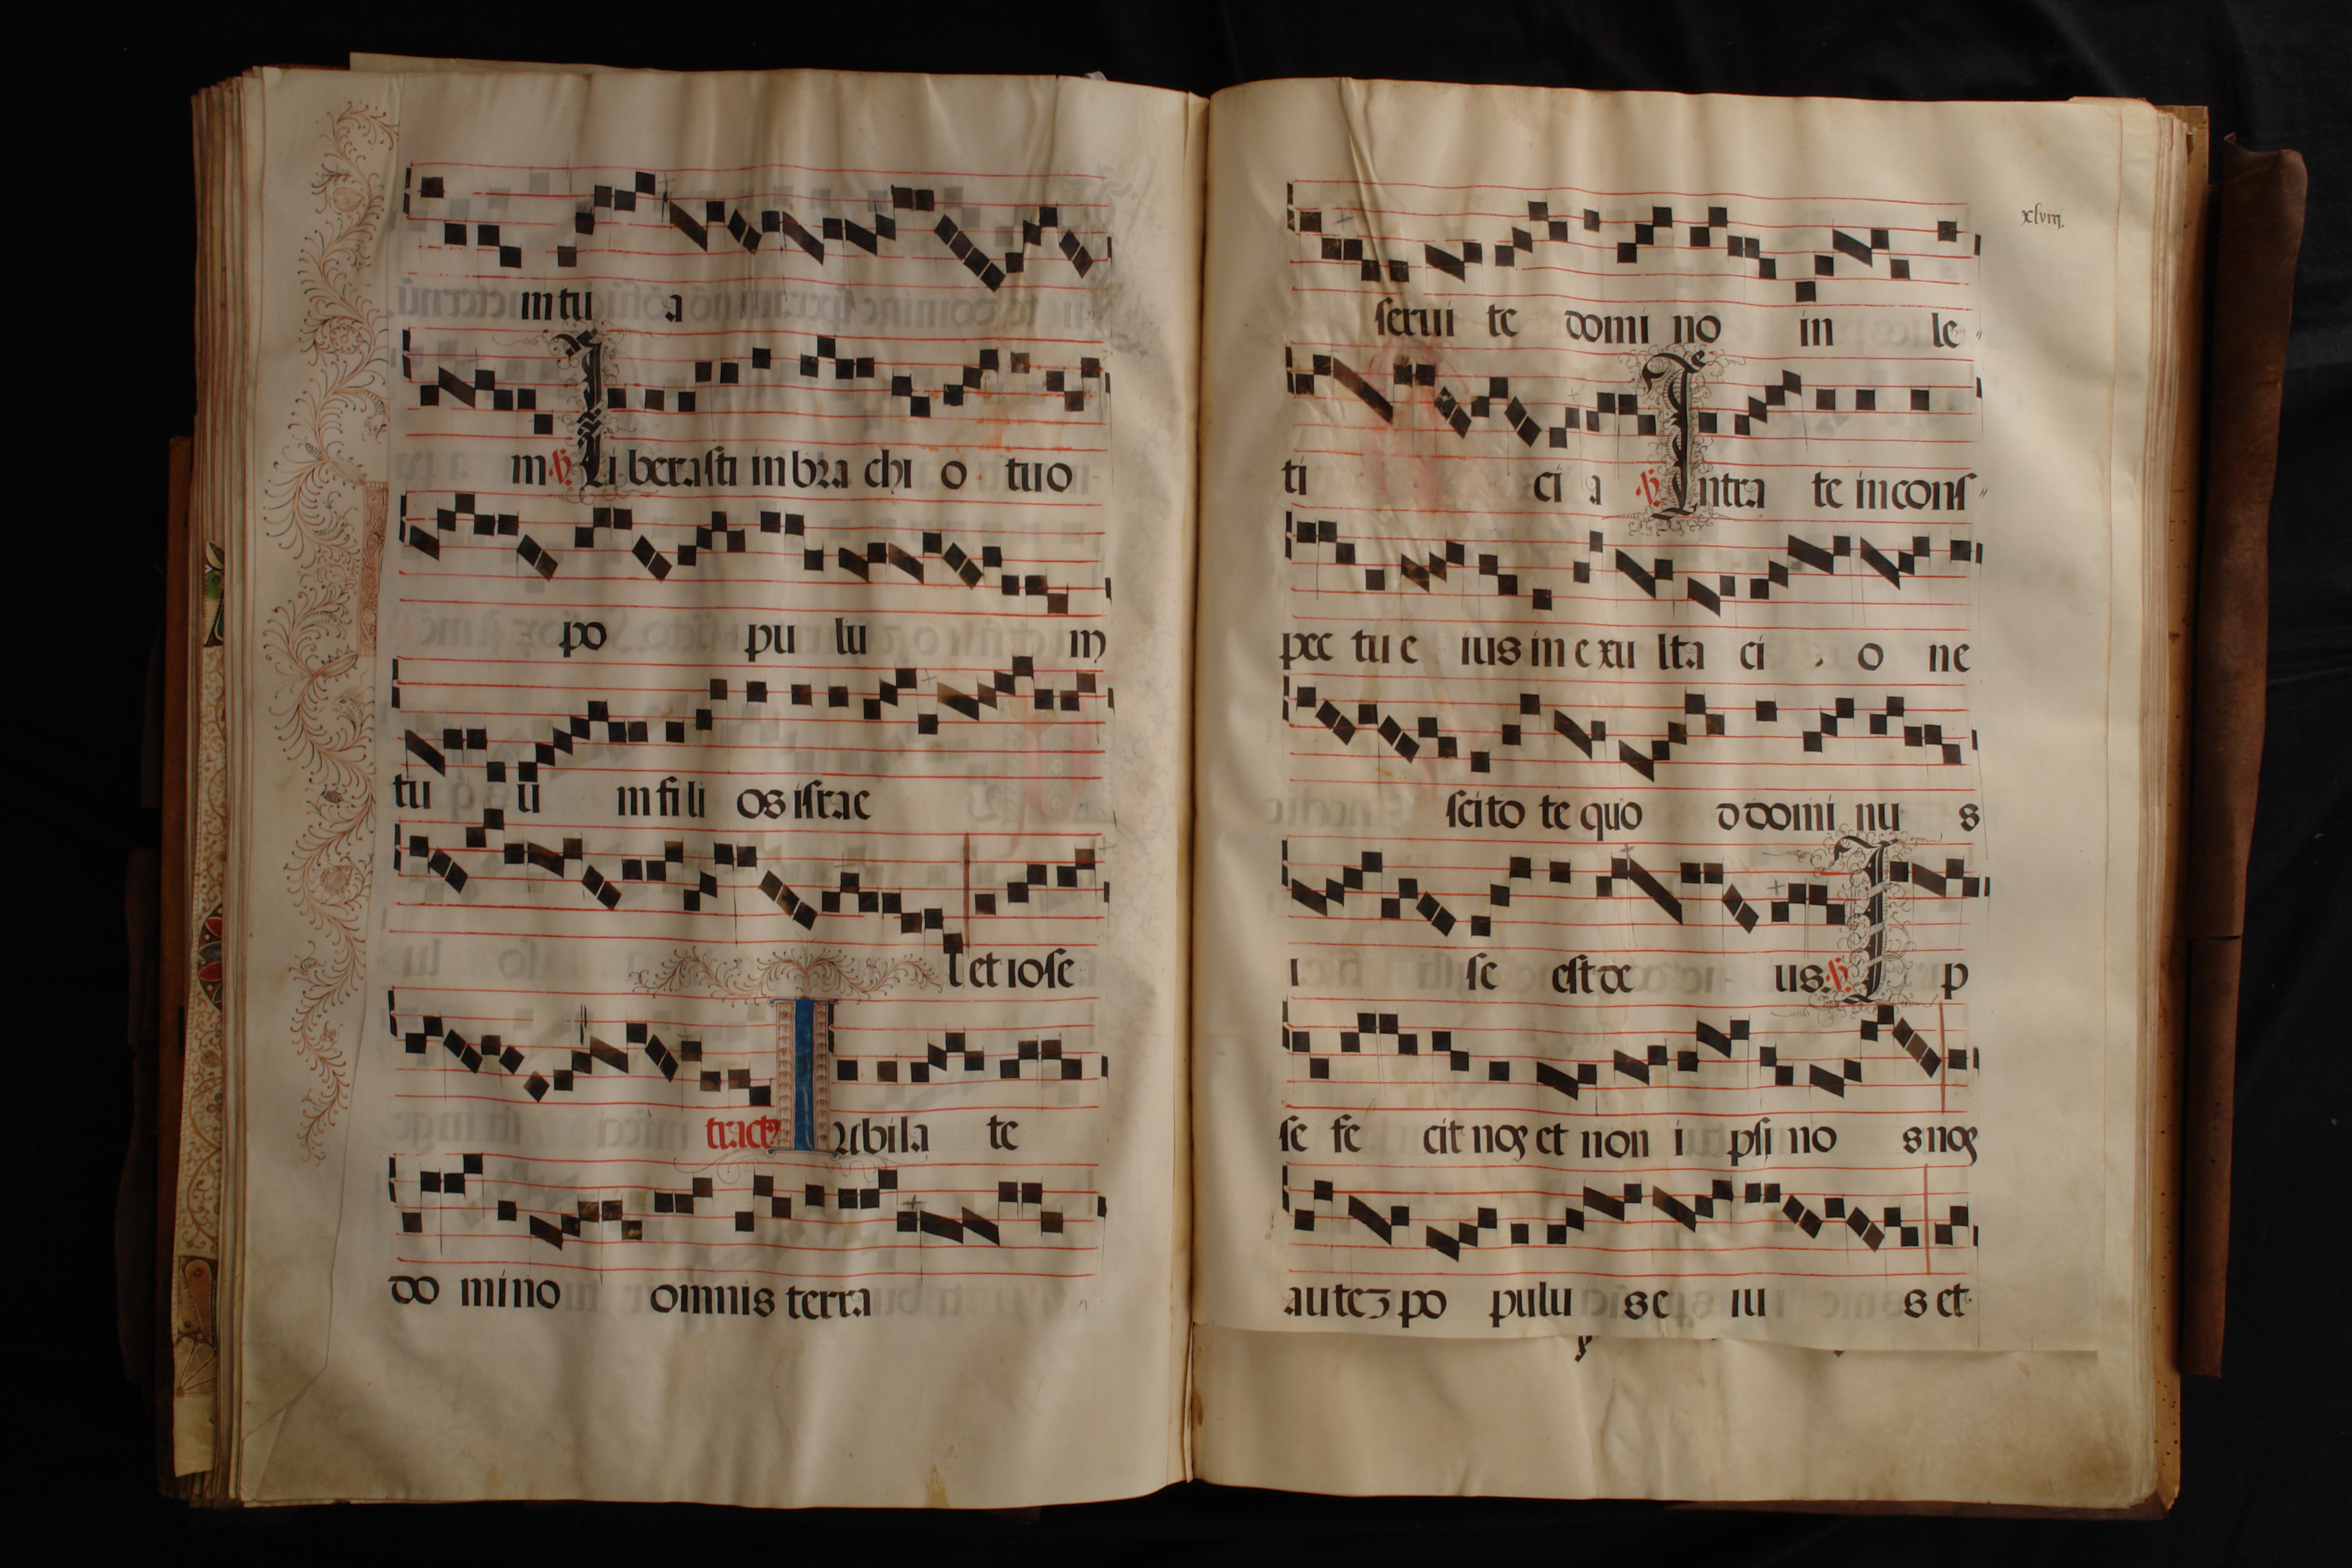 m tu a
m ℣. Li berasti in bra chi o tuo
po pu lu m
tu u m fi li os israe
l et iose
tract9 Iubila te
do mi no omnis terra
xlviij.
serui te domi no in le
ti ci a ℣. Intra te in cons
pec tu e ius in e xu lta ci o ne
scito te quo d domi nu s
i se est de us. ℣. I p
se fe cit nos et non i psi no s nos
autez po pulu s e iu s et